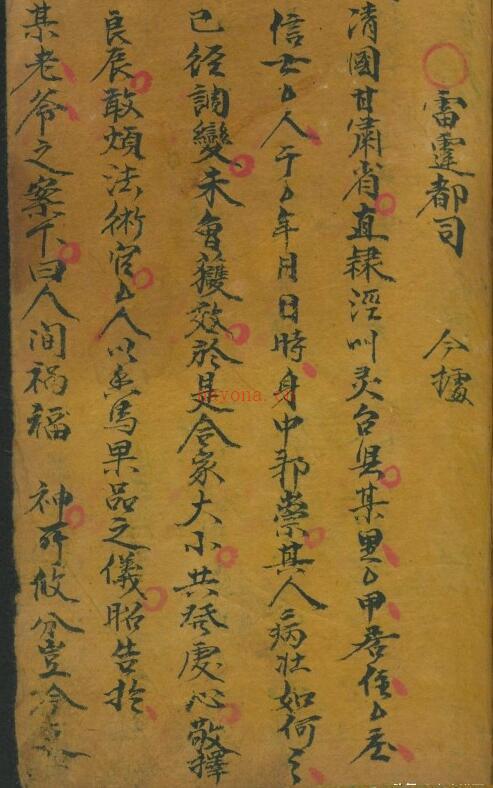 雷霆都司　今據
清國甘肅省直隸涇州灵台县某里厶甲居住厶庄
信士厶人于厶年月日時身中邪祟其人病壮如何之
已径調變未會獲效於是合家大小共發虔心敬擇
良辰敢煩法術官厶人以香馬果品之儀昭告於
某老爷之案下曰人间祸福　神所攸分豈